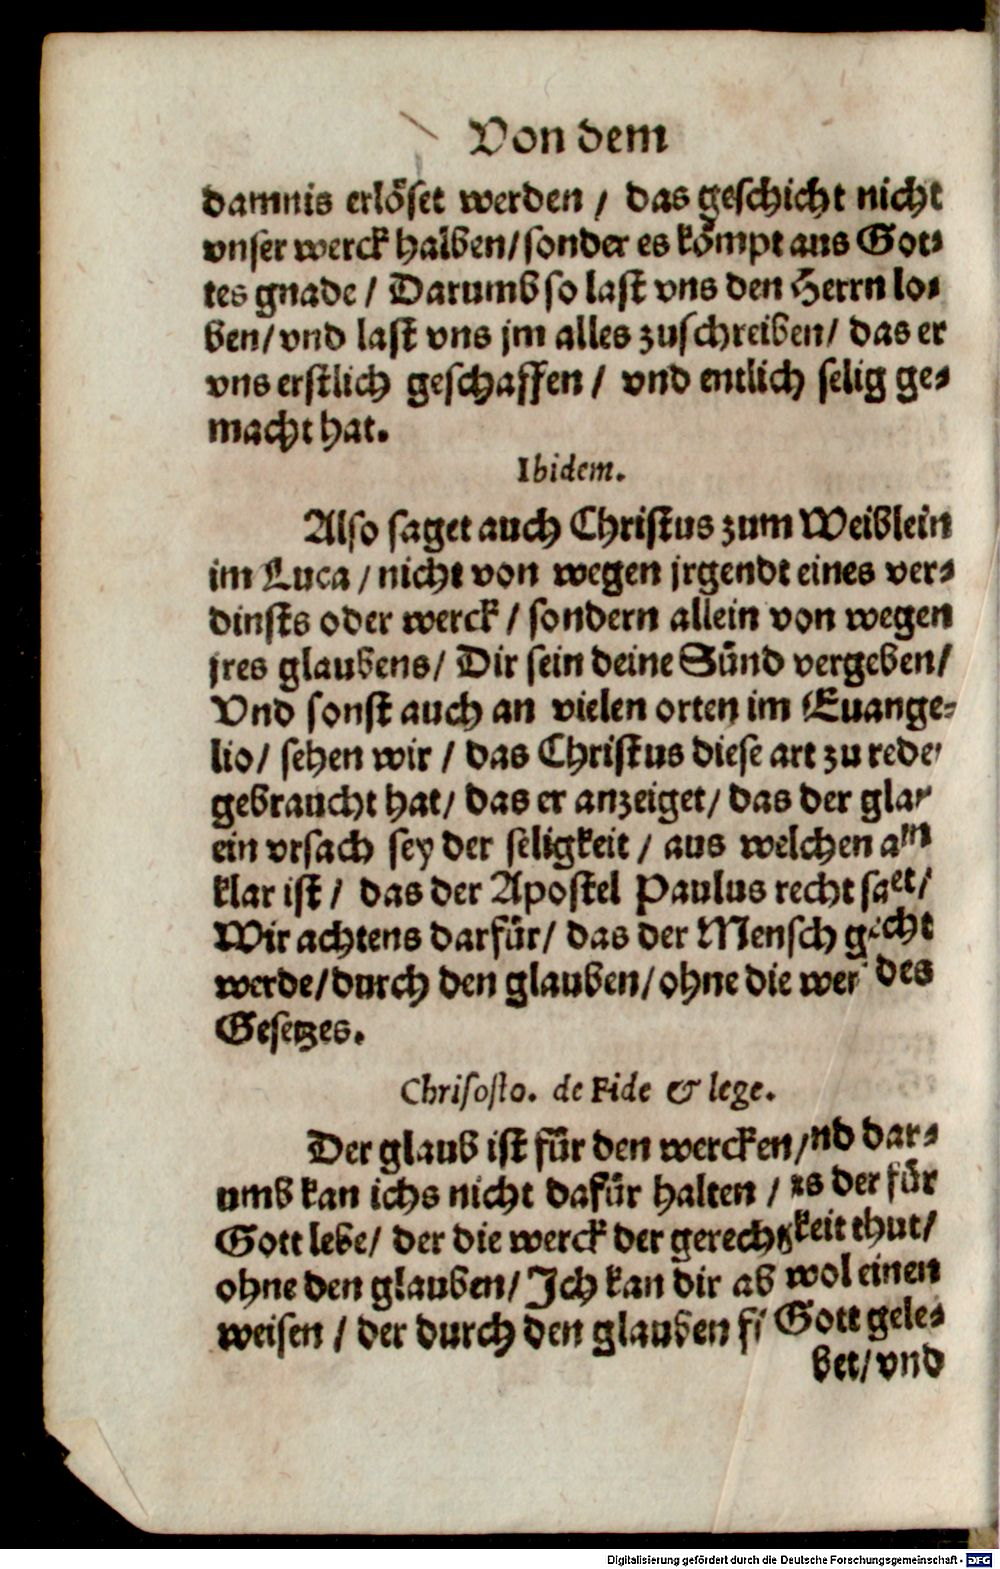 Von dem
damnis erlöset werden / das geschicht nicht
vnser werck halben / sonder es kömpt aus Got⸗
tes gnade / Darumb so last vns den Herrn lo⸗
ben / vnd last vns jm alles zuschreiben / das er
vns erstlich geschaffen / vnd entlich selig ge⸗
macht hat.
Ibidem.
Also saget auch Christus zum Weiblein
im Luca / nicht von wegen jrgendt eines ver⸗
dinsts oder werck / sondern allein von wegen
jres glaubens / Dir sein deine Sünd vergeben /
Vnd sonst auch an vielen orten im Euange⸗
lio / sehen wir / das Christus diese art zu rede
gebraucht hat / das er anzeiget / das der
ein vrsach sey der seligkeit / aus welchen
klar ist / das der Apostel Paulus recht
Wir achtens darfür / das der Mensch
werde / durch den glauben / ohne die des
Gesetzes.
Chrisosto. de Fide & lege.
Der glaub ist für den wercken / dar⸗
umb kan ichs nicht dafür halten / der für
Gott lebe / der die werck der thut /
ohne den glauben / Ich kan dir wol einen
weisen / der durch den glauben Gott gele⸗
bet / vnd
Digitalisierung gefördert durch die Deutsche Forschungsgemeinschaft - DFG